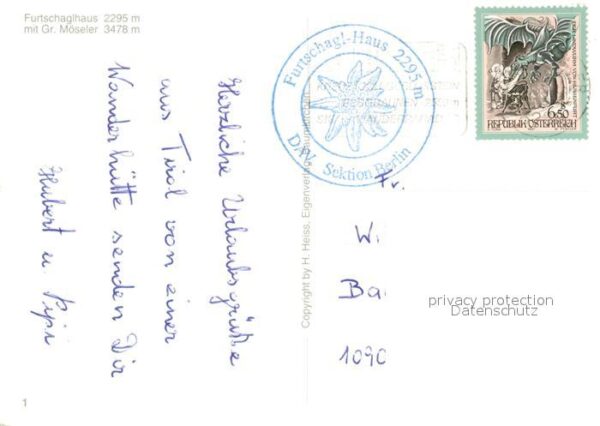 Furtschaglhaus 2295 m
mit Gr. Möseler 3478 m
Herzliche Urlaubsgrüße
aus Tirol von einer
Wanderhütte senden Dir
Hubert u. Pipi
Furtschagl-Haus 2295 m
DAV. Sektion Berlin
Copyright by H. Heiss, Eigenverlag
6.50
REPUBLIK ÖSTERREICH
Fr.
W.
Ba.
1090
privacy protection
Datenschutz
1